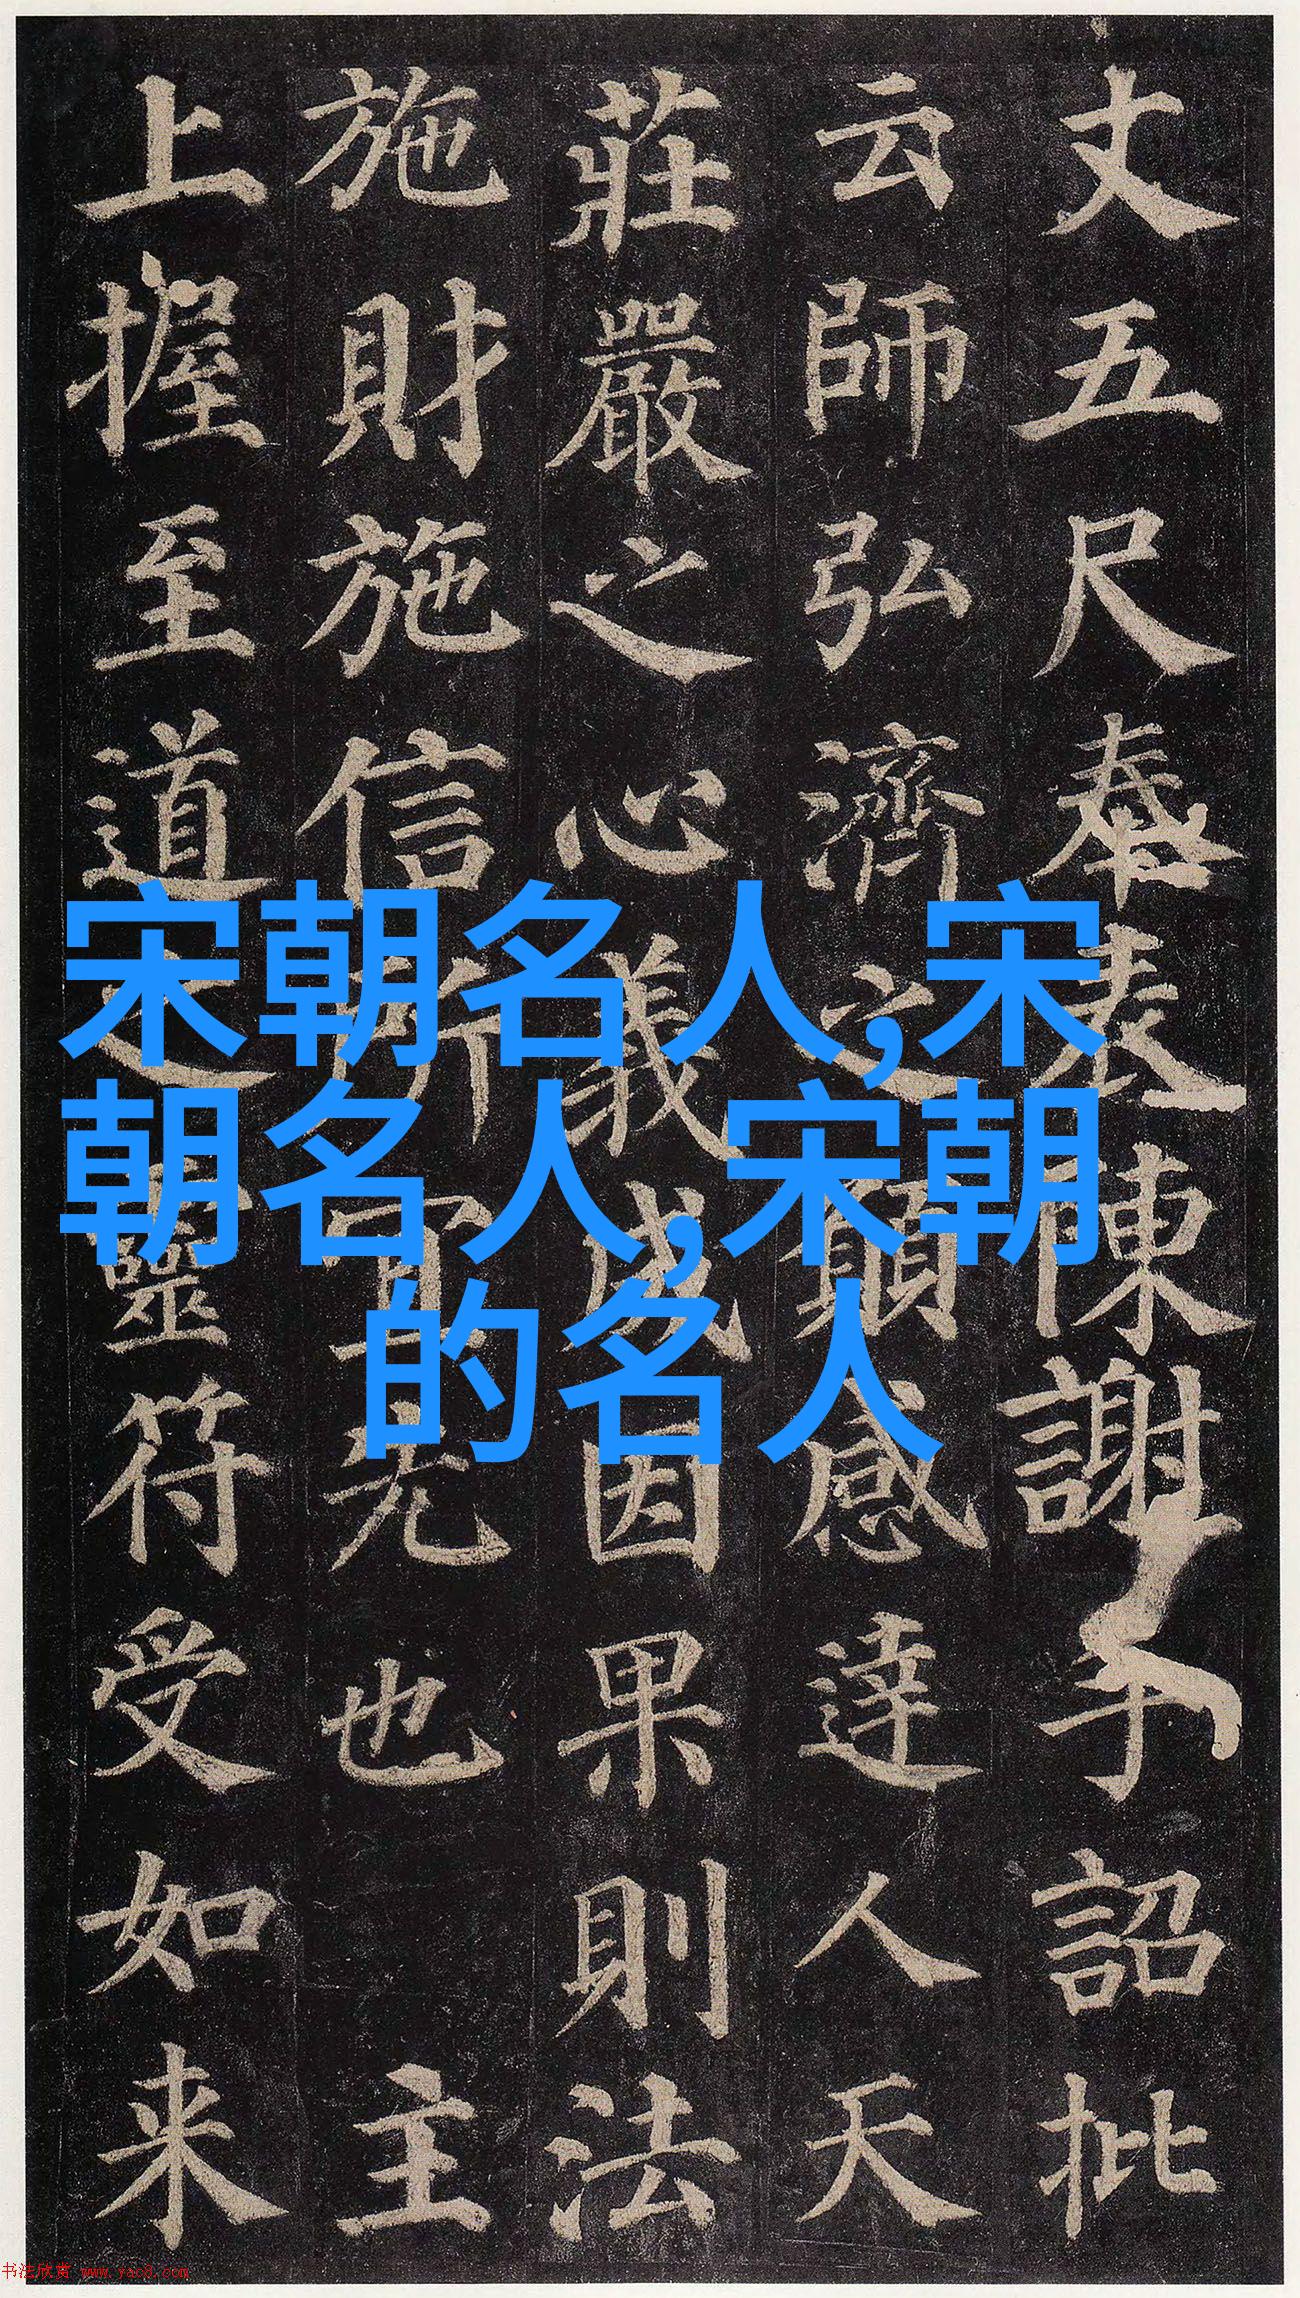 丈五尺奉表陳謝手詔批
云師弘濟之願感達人天
莊嚴之心義成因果則法
施財施信所宜先也 主
上握至道之靈符受如来
宋朝名人,宋
朝名人,宋朝
的名人
书法欣赏 www.yac8.com